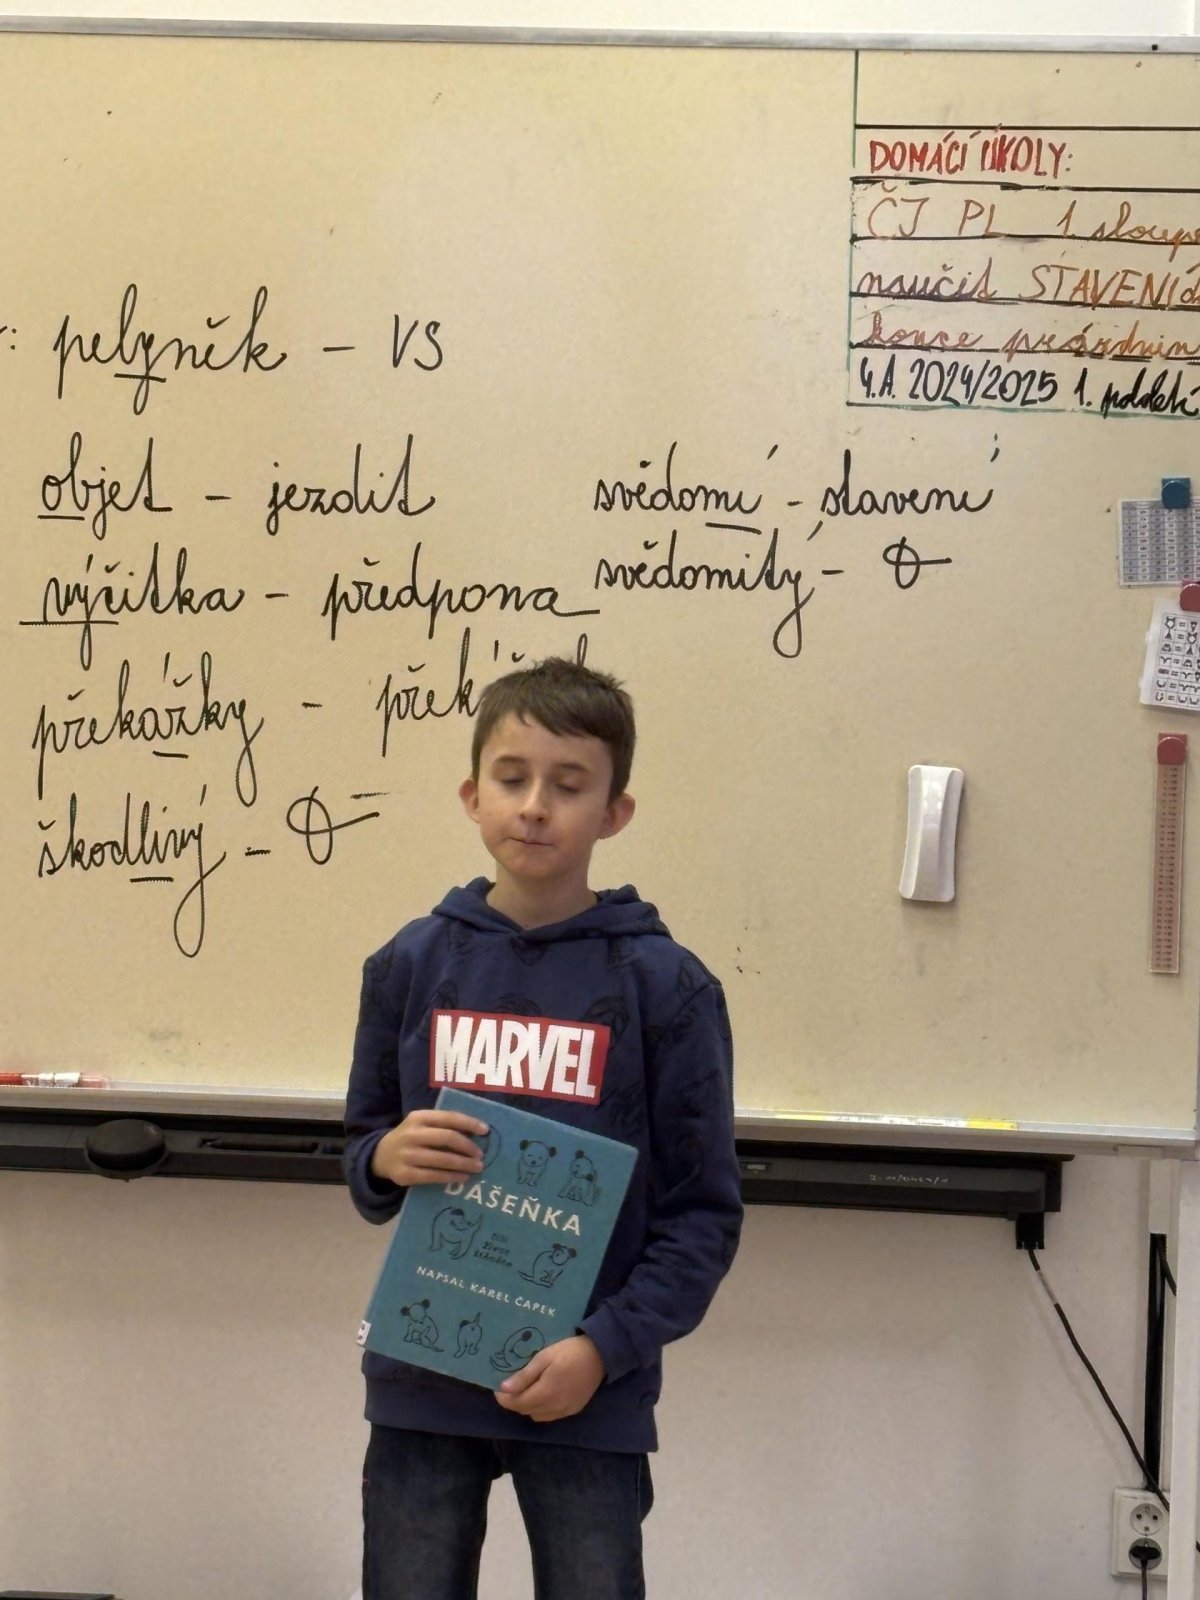 DOMÁCÍ ÚKOLY:
ČJ PL 1. sloupe
naučit STAVENÍ
konce prázdnin
4.A. 2024/2025 1. pololetí
pelyněk - VS
objet - jezdit
výčitka - předpona
překážky - překáž
škodlivý -
svědomí - stavení
svědomitý -
MARVEL
DÁŠEŇKA
čili
život
štěněte
NAPSAL KAREL ČAPEK